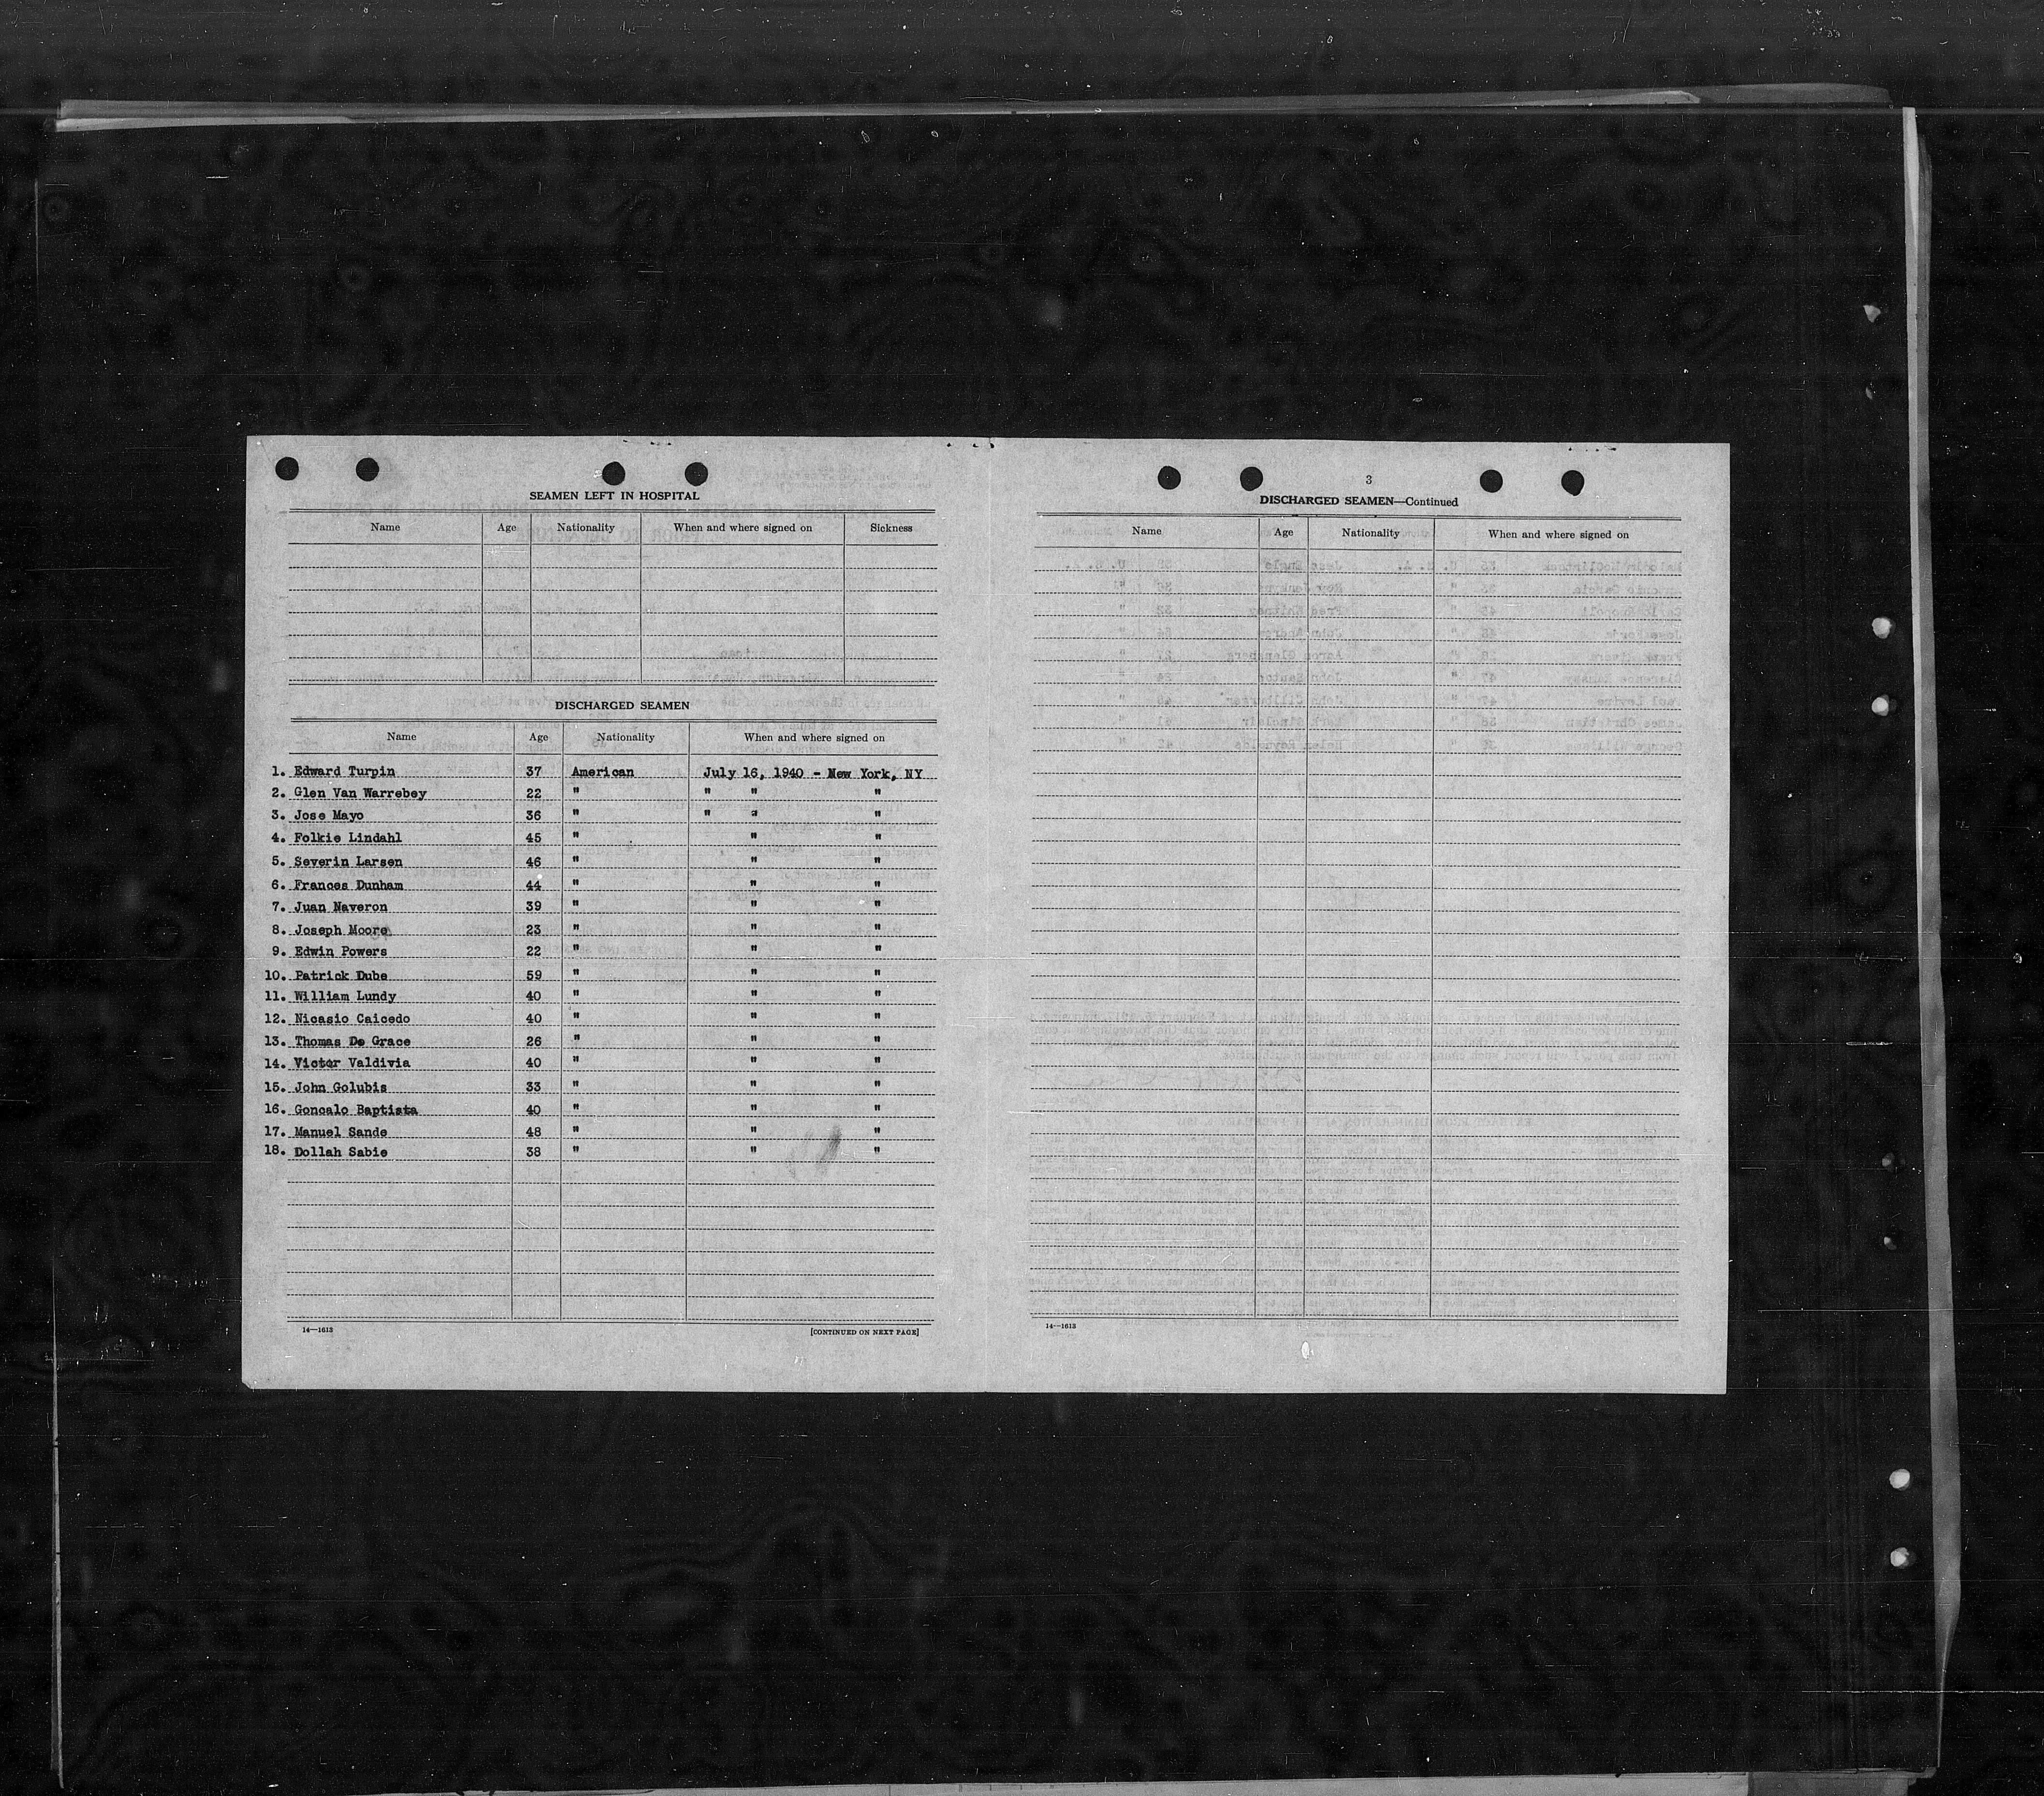 SEAMEN LEFT IN HOSPITAL
Name Age Nationality When and where signed on Sickness
DISCHARGED SEAMEN
Name Age Nationality When and where signed on
1. Edward Turpin 37 American July 16, 1940 - New York, NY
2. Glen Van Warrebey 22 " " " "
3. Jose Mayo 36 " " " "
4. Folkie Lindahl 45 " " "
5. Severin Larsen 46 " " "
6. Frances Dunham 44 " " "
7. Juan Naveron 39 " " "
8. Joseph Moore 23 " " "
9. Edwin Powers 22 " " "
10. Patrick Dube 59 " " "
11. William Lundy 40 " " "
12. Nicasio Caicedo 40 " " "
13. Thomas De Grace 26 " " "
14. Victor Valdivia 40 " " "
15. John Golubis 33 " " "
16. Goncalo Baptista 40 " " "
17. Manuel Sande 48 " " "
18. Dollah Sabie 38 " " "
14—1613 [CONTINUED ON NEXT PAGE]
3
DISCHARGED SEAMEN—Continued
Name Age Nationality When and where signed on
14—1613